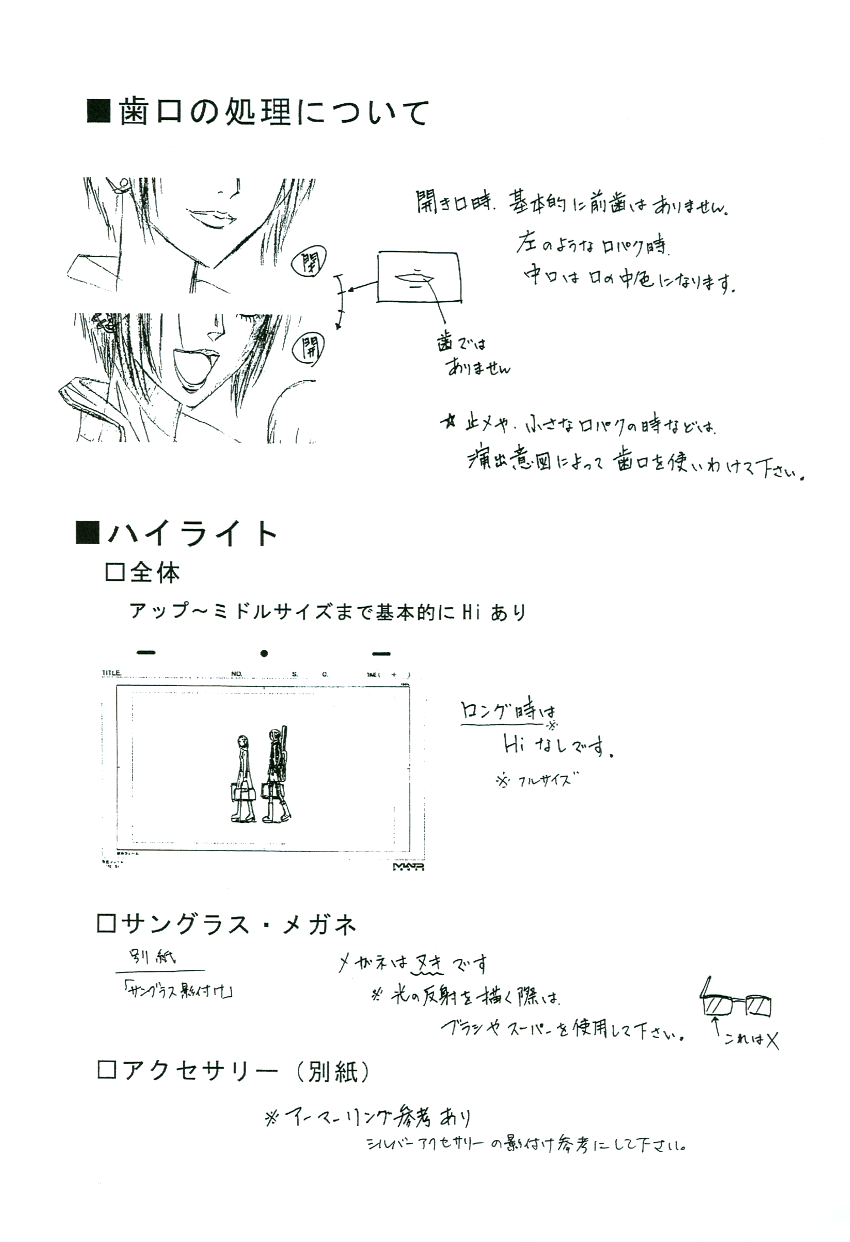 ■歯口の処理について
開き口時、基本的に前歯はありません。
左のような口パク時、
中口は口の中色になります。
開
開
歯では
ありません
☆止メや、小さな口パクの時などは、
演出意図によって歯口を使いわけて下さい。
■ハイライト
□全体
アップ～ミドルサイズまで基本的にHiあり
TITLE NO. S. C. TIME( + )
ロング時は※
Hiなしです。
※フルサイズ
□サングラス・メガネ
別紙
「サングラス影付け」
メガネはヌキです
※光の反射を描く際は、
ブラシやスーパーを使用して下さい。
これは×
□アクセサリー（別紙）
※アーマーリング参考あり
シルバーアクセサリーの影付け参考にして下さい。